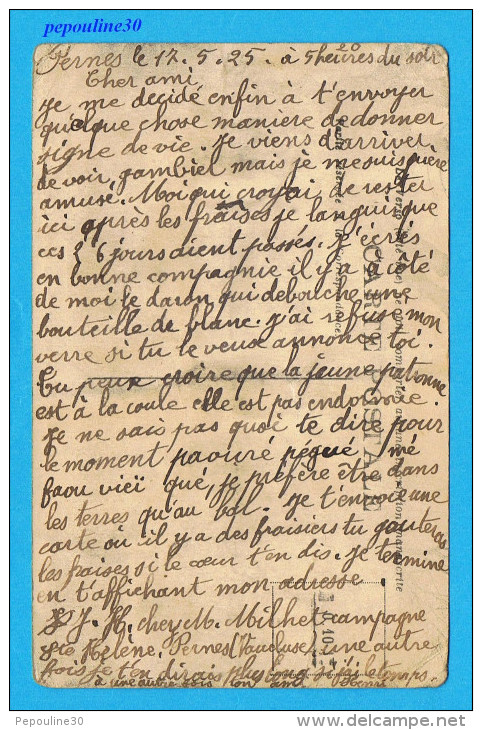 pepouline30
Pernes le 17.5.25. à 5 heures 20 du soir
Cher ami
Je me decidé enfin à t'envoyer
quelque chose maniere de donner
signe de vie. Je viens d'arriver
de voir gambier mais je me suis guère
amusé. Moi qui croyai de rester
ici après les fraises je languis que
ces 5 6 jours aient passés. J'écris
en bonne compagnie il y a à côté
de moi le daron qui debouche une
bouteille de blanc. j'ai refusé mon
verre si tu le veux annonce toi.
Tu peux croire que la jeune patronne
est à la coule elle est pas endormie.
Je ne sais pas quoi te dire pour
le moment paouré pégué mé
faou vieï qué, je préfère être dans
les terres qu'au bal. Je t'envoie une
carte où il y a des fraisiers tu gouteras
les fraises si le cœur t'en dis. Je termine
en t'affichant mon adresse
J. H. chez M. Milhet campagne
Ste Hélène. Pernes (Vaucluse) une autre
fois je t'en dirais plus long si j'ai le temps.
à une autre fois ton ami
CARTE POSTALE
Pepouline30